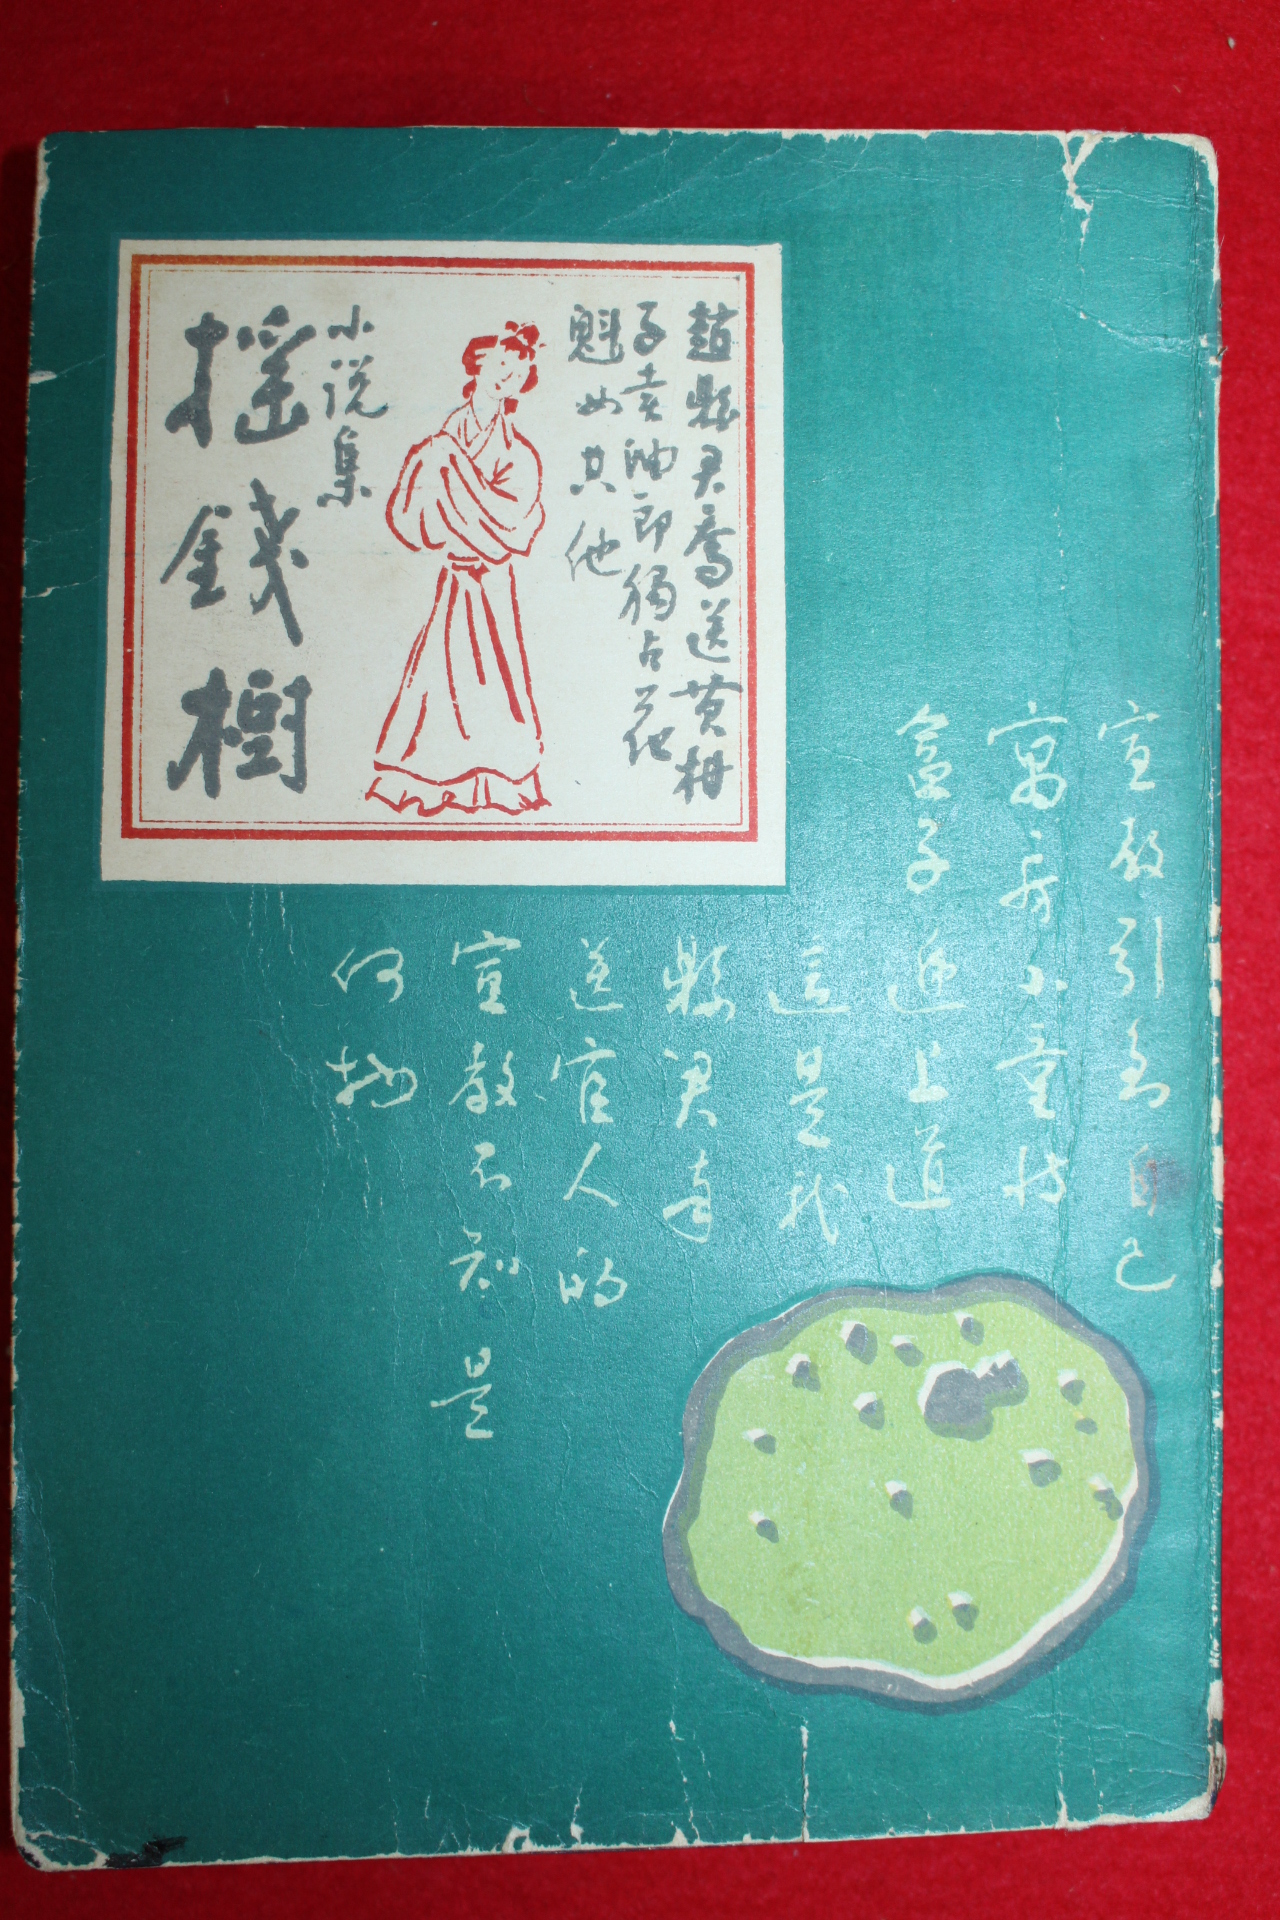 趙縣君喬送黃柑
子賣油郎獨占花
魁女其他
小说集
搖錢樹
宣教引到自己
寓房小童持
盒子近上道
這是我
縣君奉
送官人的
宣教不知是
何物